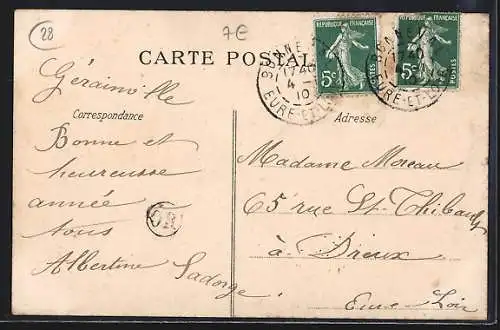 28
7E
CARTE POSTALE
RÉPUBLIQUE FRANÇAISE
5c
POSTES
RÉPUBLIQUE FRANÇAISE
5c
POSTES
17 40
4
10
EURE-ET-LOIR
EURE-ET-LOIR
Correspondance
Adresse
Gérainville
Bonne et
heureuse
année
tous
Albertine Sadorge
OR
Madame Moreau
65 rue St-Thibault
à Dreux
Eure Loir